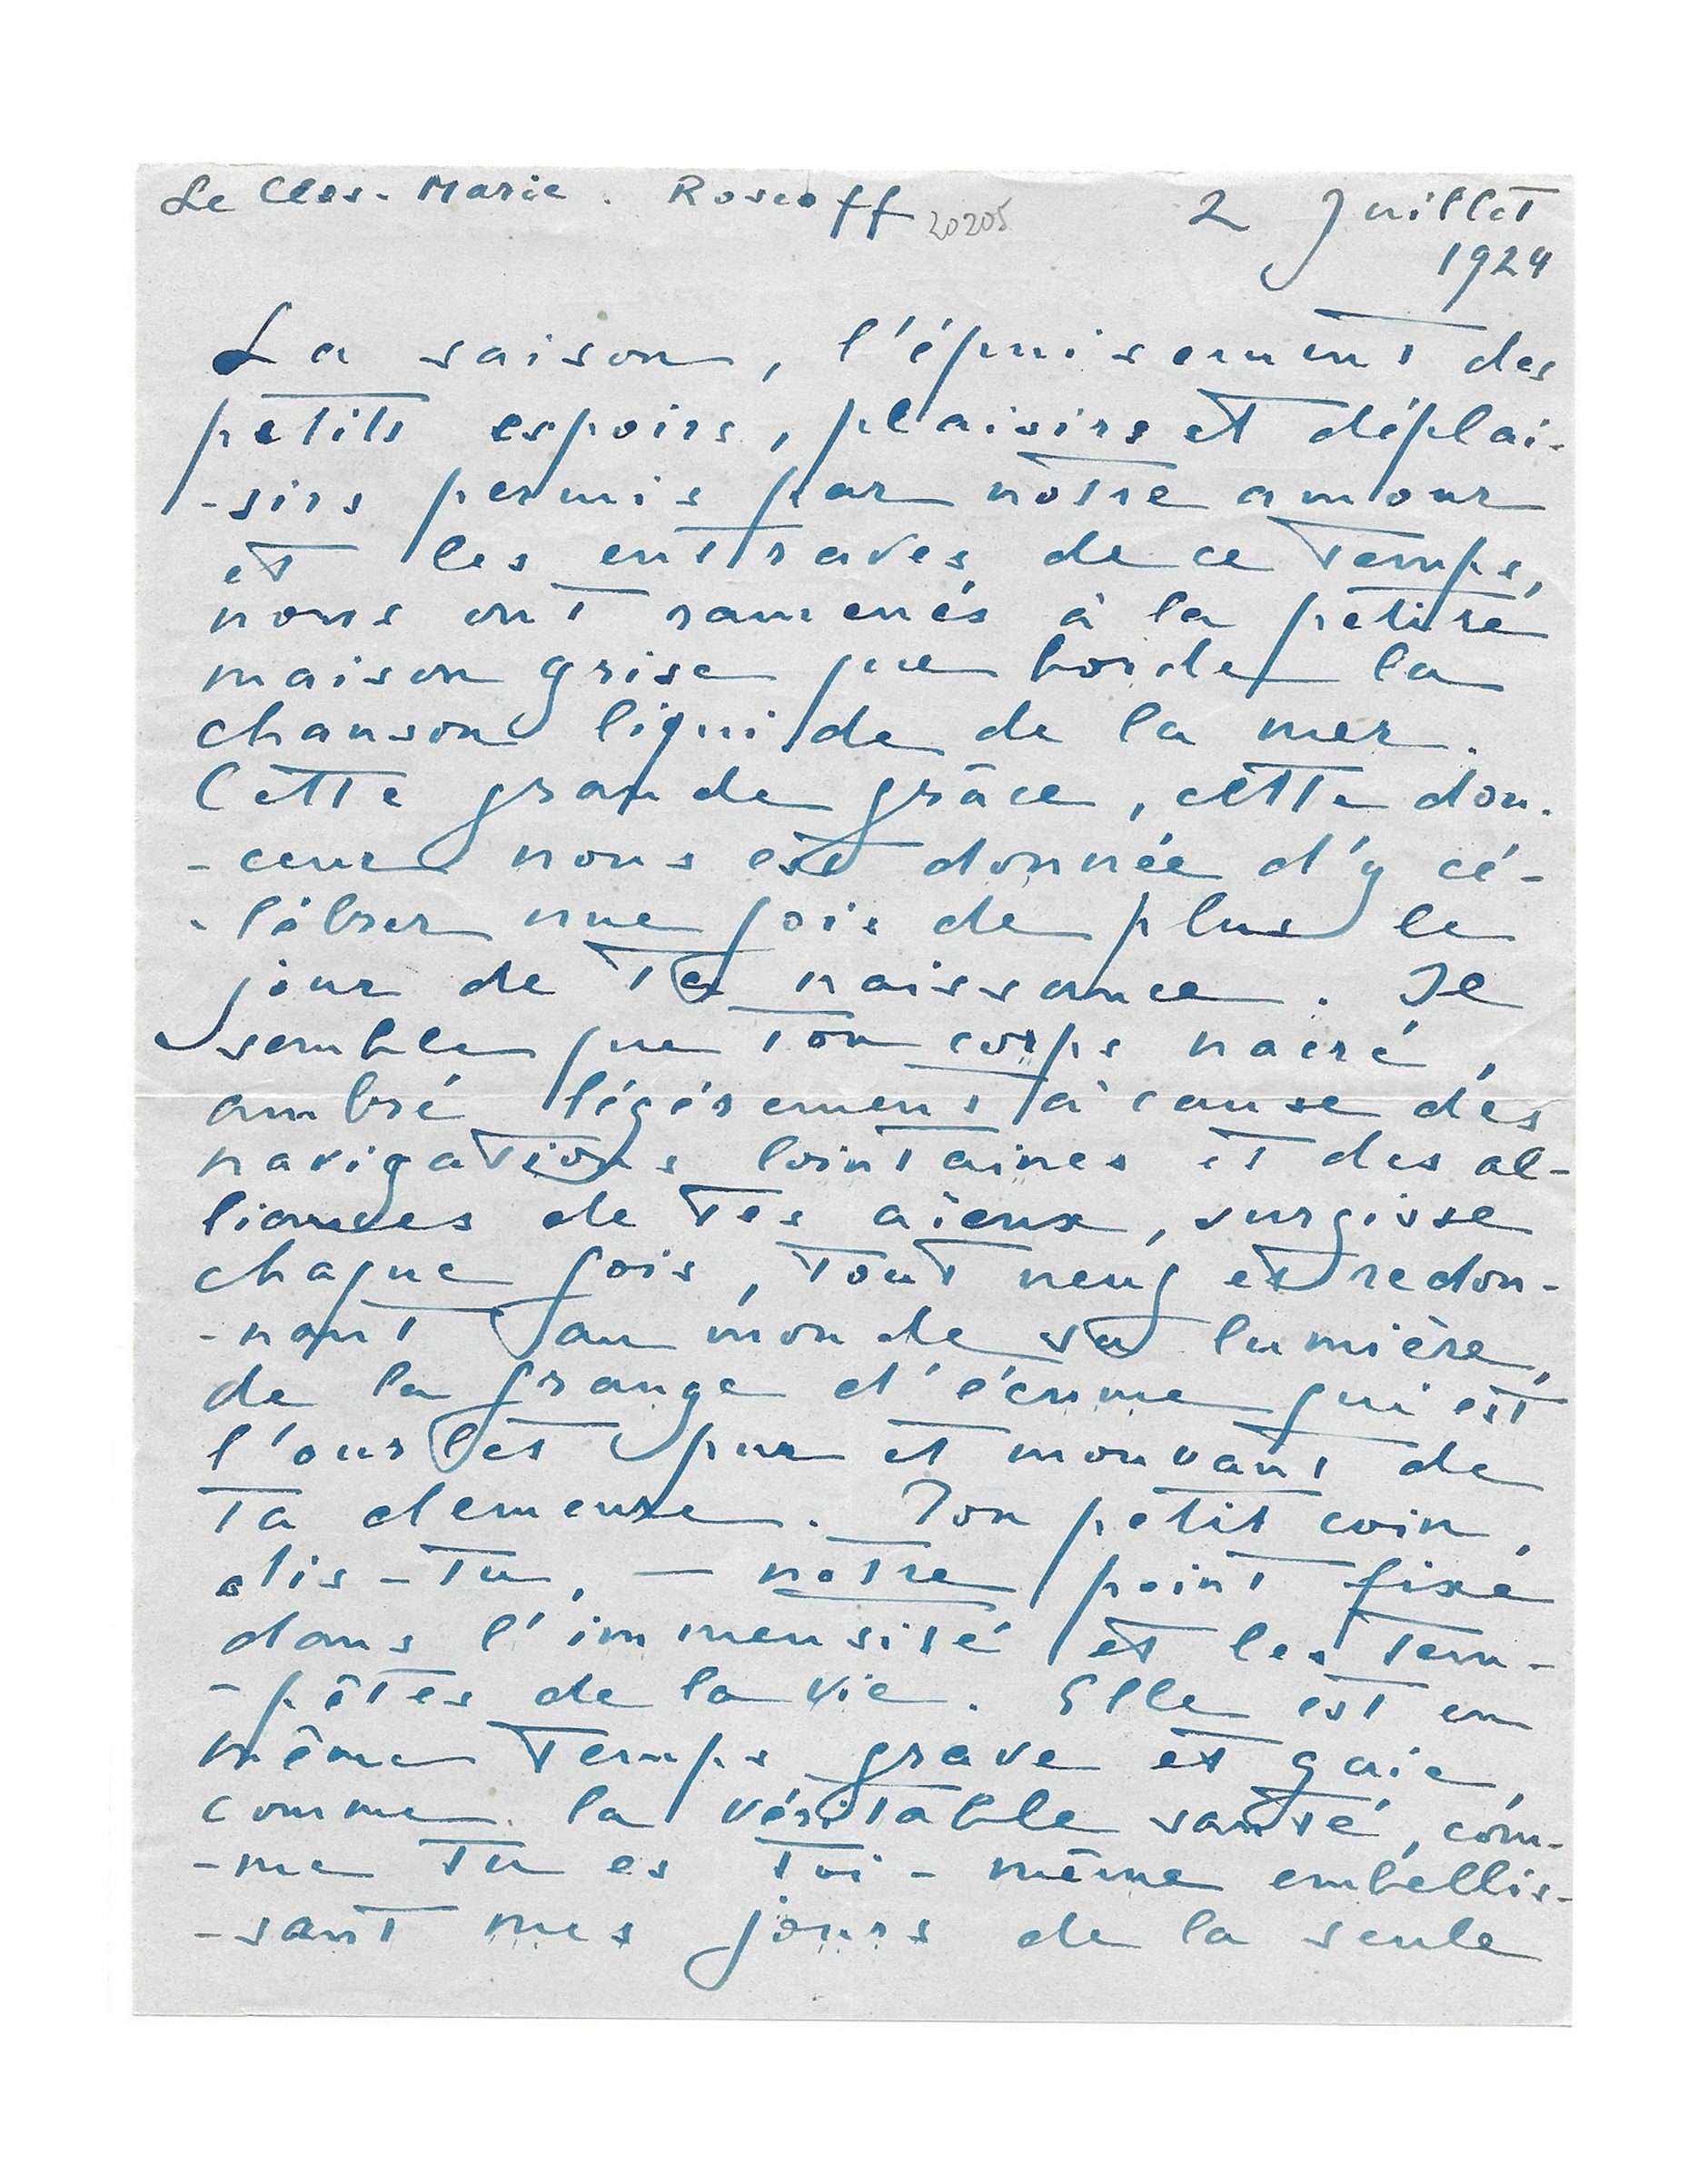 Le Clos-Marie. Roscoff 20205 2 Juillet
1924
La saison, l'épuisement des
petits espoirs, plaisirs et déplai-
-sirs permis par notre amour
et les entraves de ce temps,
nous ont ramenés à la petite
maison grise que borde la
chanson liquide de la mer.
Cette grande grâce, cette dou-
-ceur nous est donnée d'y cé-
-lébrer une fois de plus le
jour de ta naissance. Il
semble que ton corps nacré,
ambré légèrement à cause des
navigations lointaines et des al-
liances de tes aïeux, surgisse
chaque fois, tout neuf et redon-
-nant au monde sa lumière,
de la frange d'écume qui est
l'ourlet pur et mouvant de
ta demeure. Ton petit coin,
dis-tu, — notre point fixe
dans l'immensité et les tem-
-pêtes de la vie. Elle est en
même temps grave et gaie,
comme la véritable santé, com-
-me tu es toi-même embellis-
-sant mes jours de la seule